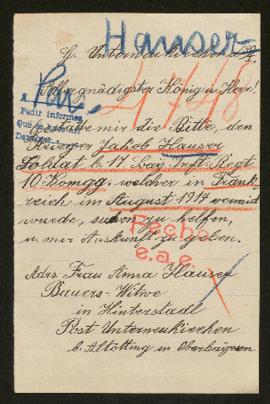 Hauser
Allergnädigster König u. Herr!
4748
Pedir informes
mir die Bitte, den
Krieger Jakob Hauser
Soldat b. 17. bay. Inft. Regt.
10. Kompg. welcher in Frank-
reich im August 1914 vermißt
wurde, suchen zu helfen,
u. mir Auskunft zu geben.
Fecho
e.a.e.
Adrs. Frau Anna Hauser
Bauers-Witwe
in Hinterstadl
Post Unterneukirchen
b. Altötting in Oberbayern